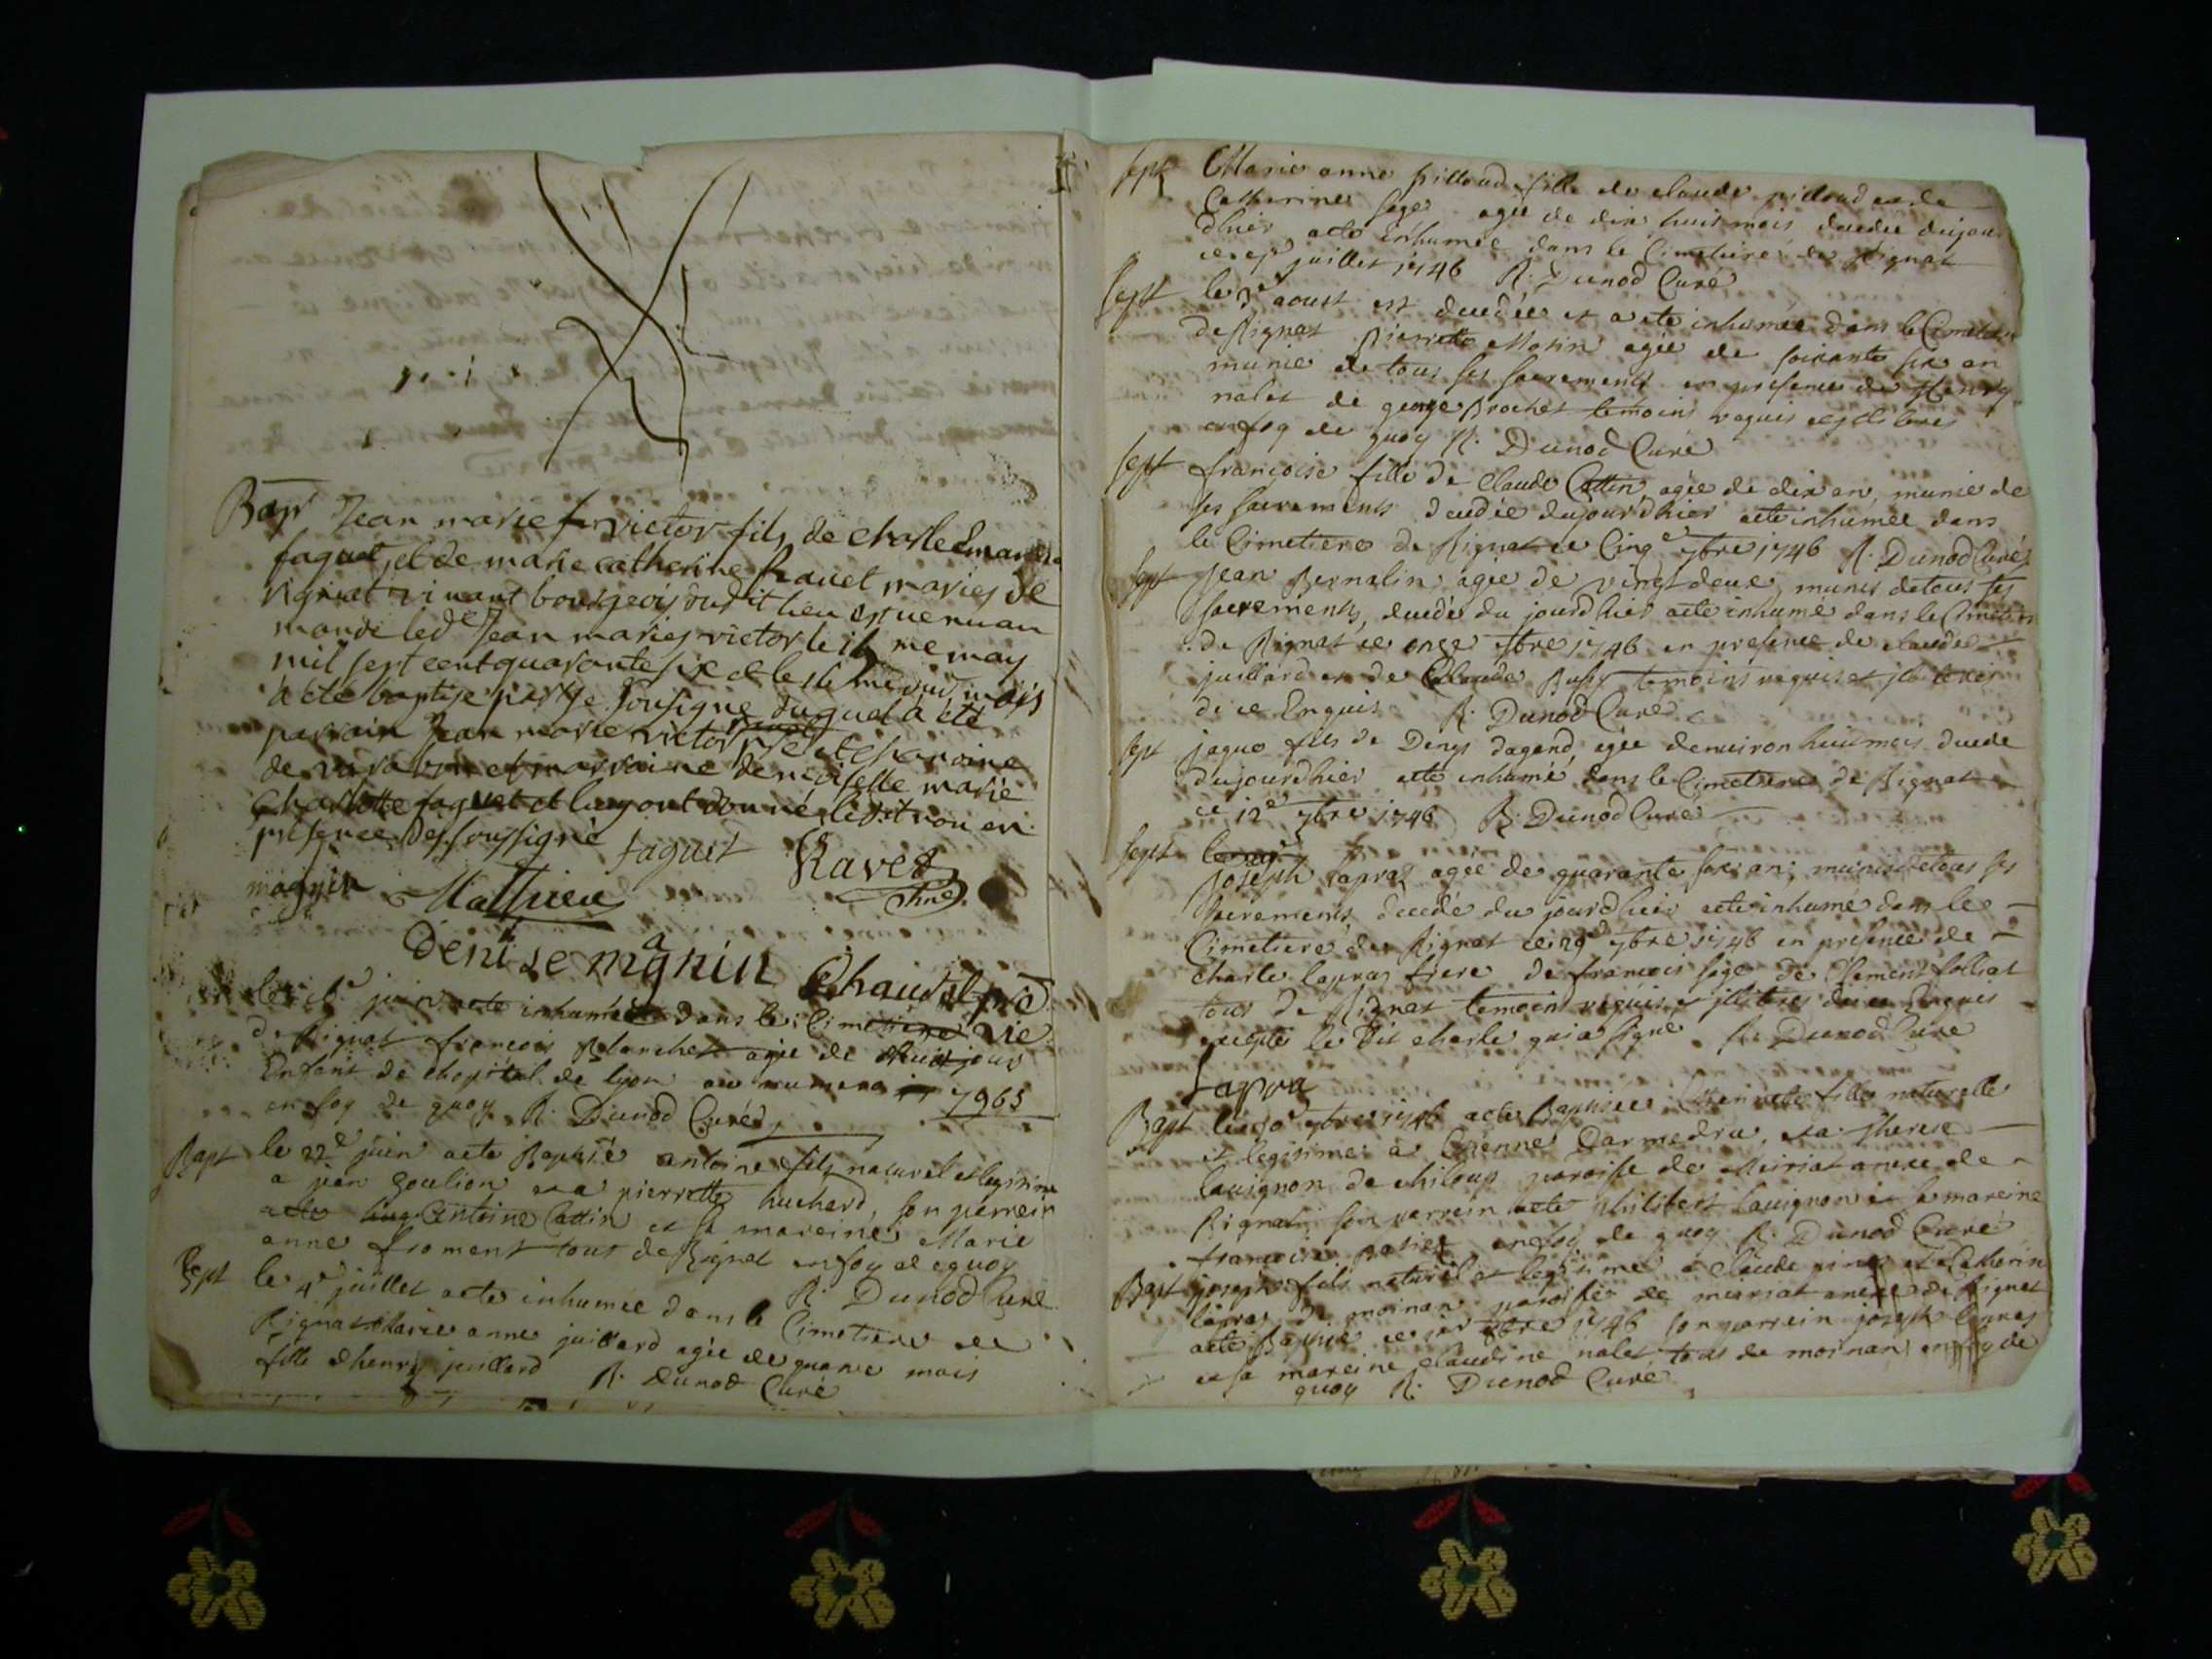 Bapt Jean marie victor fils de charle Emanuel
faguet, et de marie catherine Ravet maries de
Rignat vivant bourgeois dudit lieu est venu au
monde led Jean maries victor le me may
mil sept cent quarante six et le me dud mois
a été baptisé par Je soussigné duquel a été
parrain Jean marie victor et chanoine
de et marraine demoiselle marie
Charlotte faguet et luy ont donné ledit nom en
presence des soussigné faguet Ravet
magnin Mathieu
denise magnin Chaudel
le juin acte inhumé dans le Cimetiere
de Rignat francois Blanchet agé de jours
Enfant de chopital de lyon au numero 7965
en foy de quoy R. Dunod Curé
Bapt le 22e juin acte Baptisé antoine fils naturel et legitime
a jean Goulion et a pierrette huchard, son parrein
acte antoine Cattin et sa mareine Marie
anne froment tous de Rignat en foy de quoy
R. Dunod Curé
Sept le 4e juillet acte inhumée dans le Cimetiere de
Rignat Marie anne juillard agée de quatre mois
fille dhenry juillard R. Dunod Curé
Sept Marie anne pilloud fille de claude pilloud et de
Catherine sage agée de dix huit mois decedée dujour
dhier acte inhumée dans le Cimetiere de Rignat
ce juillet 1746 R. Dunod Curé
Sept le 3e aoust est decedée et a ete inhumée dans le Cimetiere
de Rignat Pierrette Morin agée de soixante six an
munie de tous ses sacrements en presence de Henry
nalet de george Brochet temoins requis et illiteres
en foy de quoy R. Dunod Curé
Sept francoise fille de Claude Cattin agée de dix an, munie de
ses sacrements decedée dujourdhier acte inhumée dans
le Cimetiere de Rignat ce Cinqe 7bre 1746 R. Dunod Curé
Sept Jean Bernalin agée de vingt deux, munis de tous ses
sacrements, decedé du jourdhier acte inhumé dans le Cimetiere
de Rignat ce onze 7bre 1746 en presence de claude
juillard et de Claude temoins requis et
de ce Enquis R. Dunod Curé
Sept jaque fils de Denys dagand agée denviron huit mois decede
dujourdhier acte inhumé dans le Cimetiere de Rignat
ce 12e 7bre 1746 R. Dunod Curé
Sept
Joseph lapraz agée de quarante six an; munis de tous ses
sacrements decedé du jourdhier acte inhumé dans le
Cimetiere de Rignat ce 29e 7bre 1746 en presence de
charle lapras frere de francois sage de Clement folliat
tous de Rignat temoins requis et illiteres de ce Enquis
excepté le Dit charle qui a signé R. Dunod Curé
Lapra
Bapt le 30e 7bre 1746 acte Baptisée fille naturelle
et legitime a Etienne Darmedru, et a therese
lauignon de chiloup paroisse de Meiriat anexe de
Rignat son parrein acte philibert lauignon et sa mareine
francoise en foy de quoy R. Dunod Curé
Bapt joseph fils naturel et legitime a claude et a Catherin
lapras de moinan paroisse de meiriat anexe de Rignat
acte Baptisé ce 1746 son parrein joseph lapras
et sa mareine claudine nalet tous de moinan en foy de
quoy R. Dunod Curé